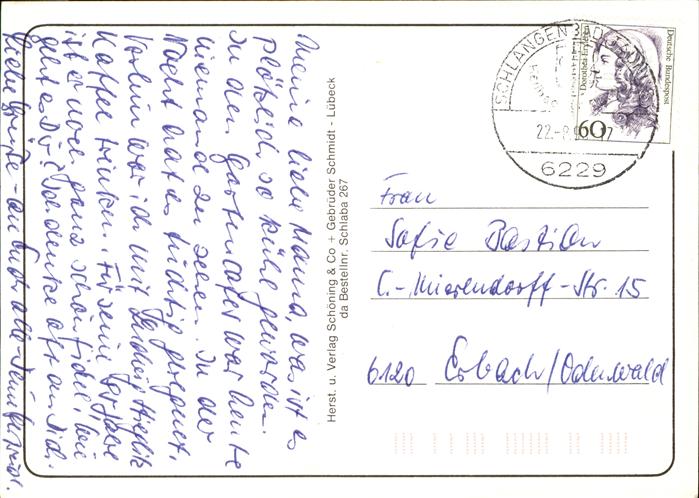 Meine liebe Mama, was ist es
plötzlich so kühl geworden.
In den Gartencafes war heute
niemand zu sehen. In der
Nacht hat es tüchtig geregnet.
Vorhin war ich mit
Kaffee trinken. Für seine 
ist er noch ganz schön fidel. Wie
geht es Dir? Ich denke oft an Dich.
Liebe Grüße - an Euch alle -
Herst. u. Verlag Schöning & Co + Gebrüder Schmidt - Lübeck
da Bestellnr. Schlaba 267
SCHLANGENBAD
22.-8.
6229
Deutsche Bundespost
Dorothea Erxleben
60
Frau
Sofie Bastian
C.-Mierendorff-Str. 15
6120 Erbach/Odenwald